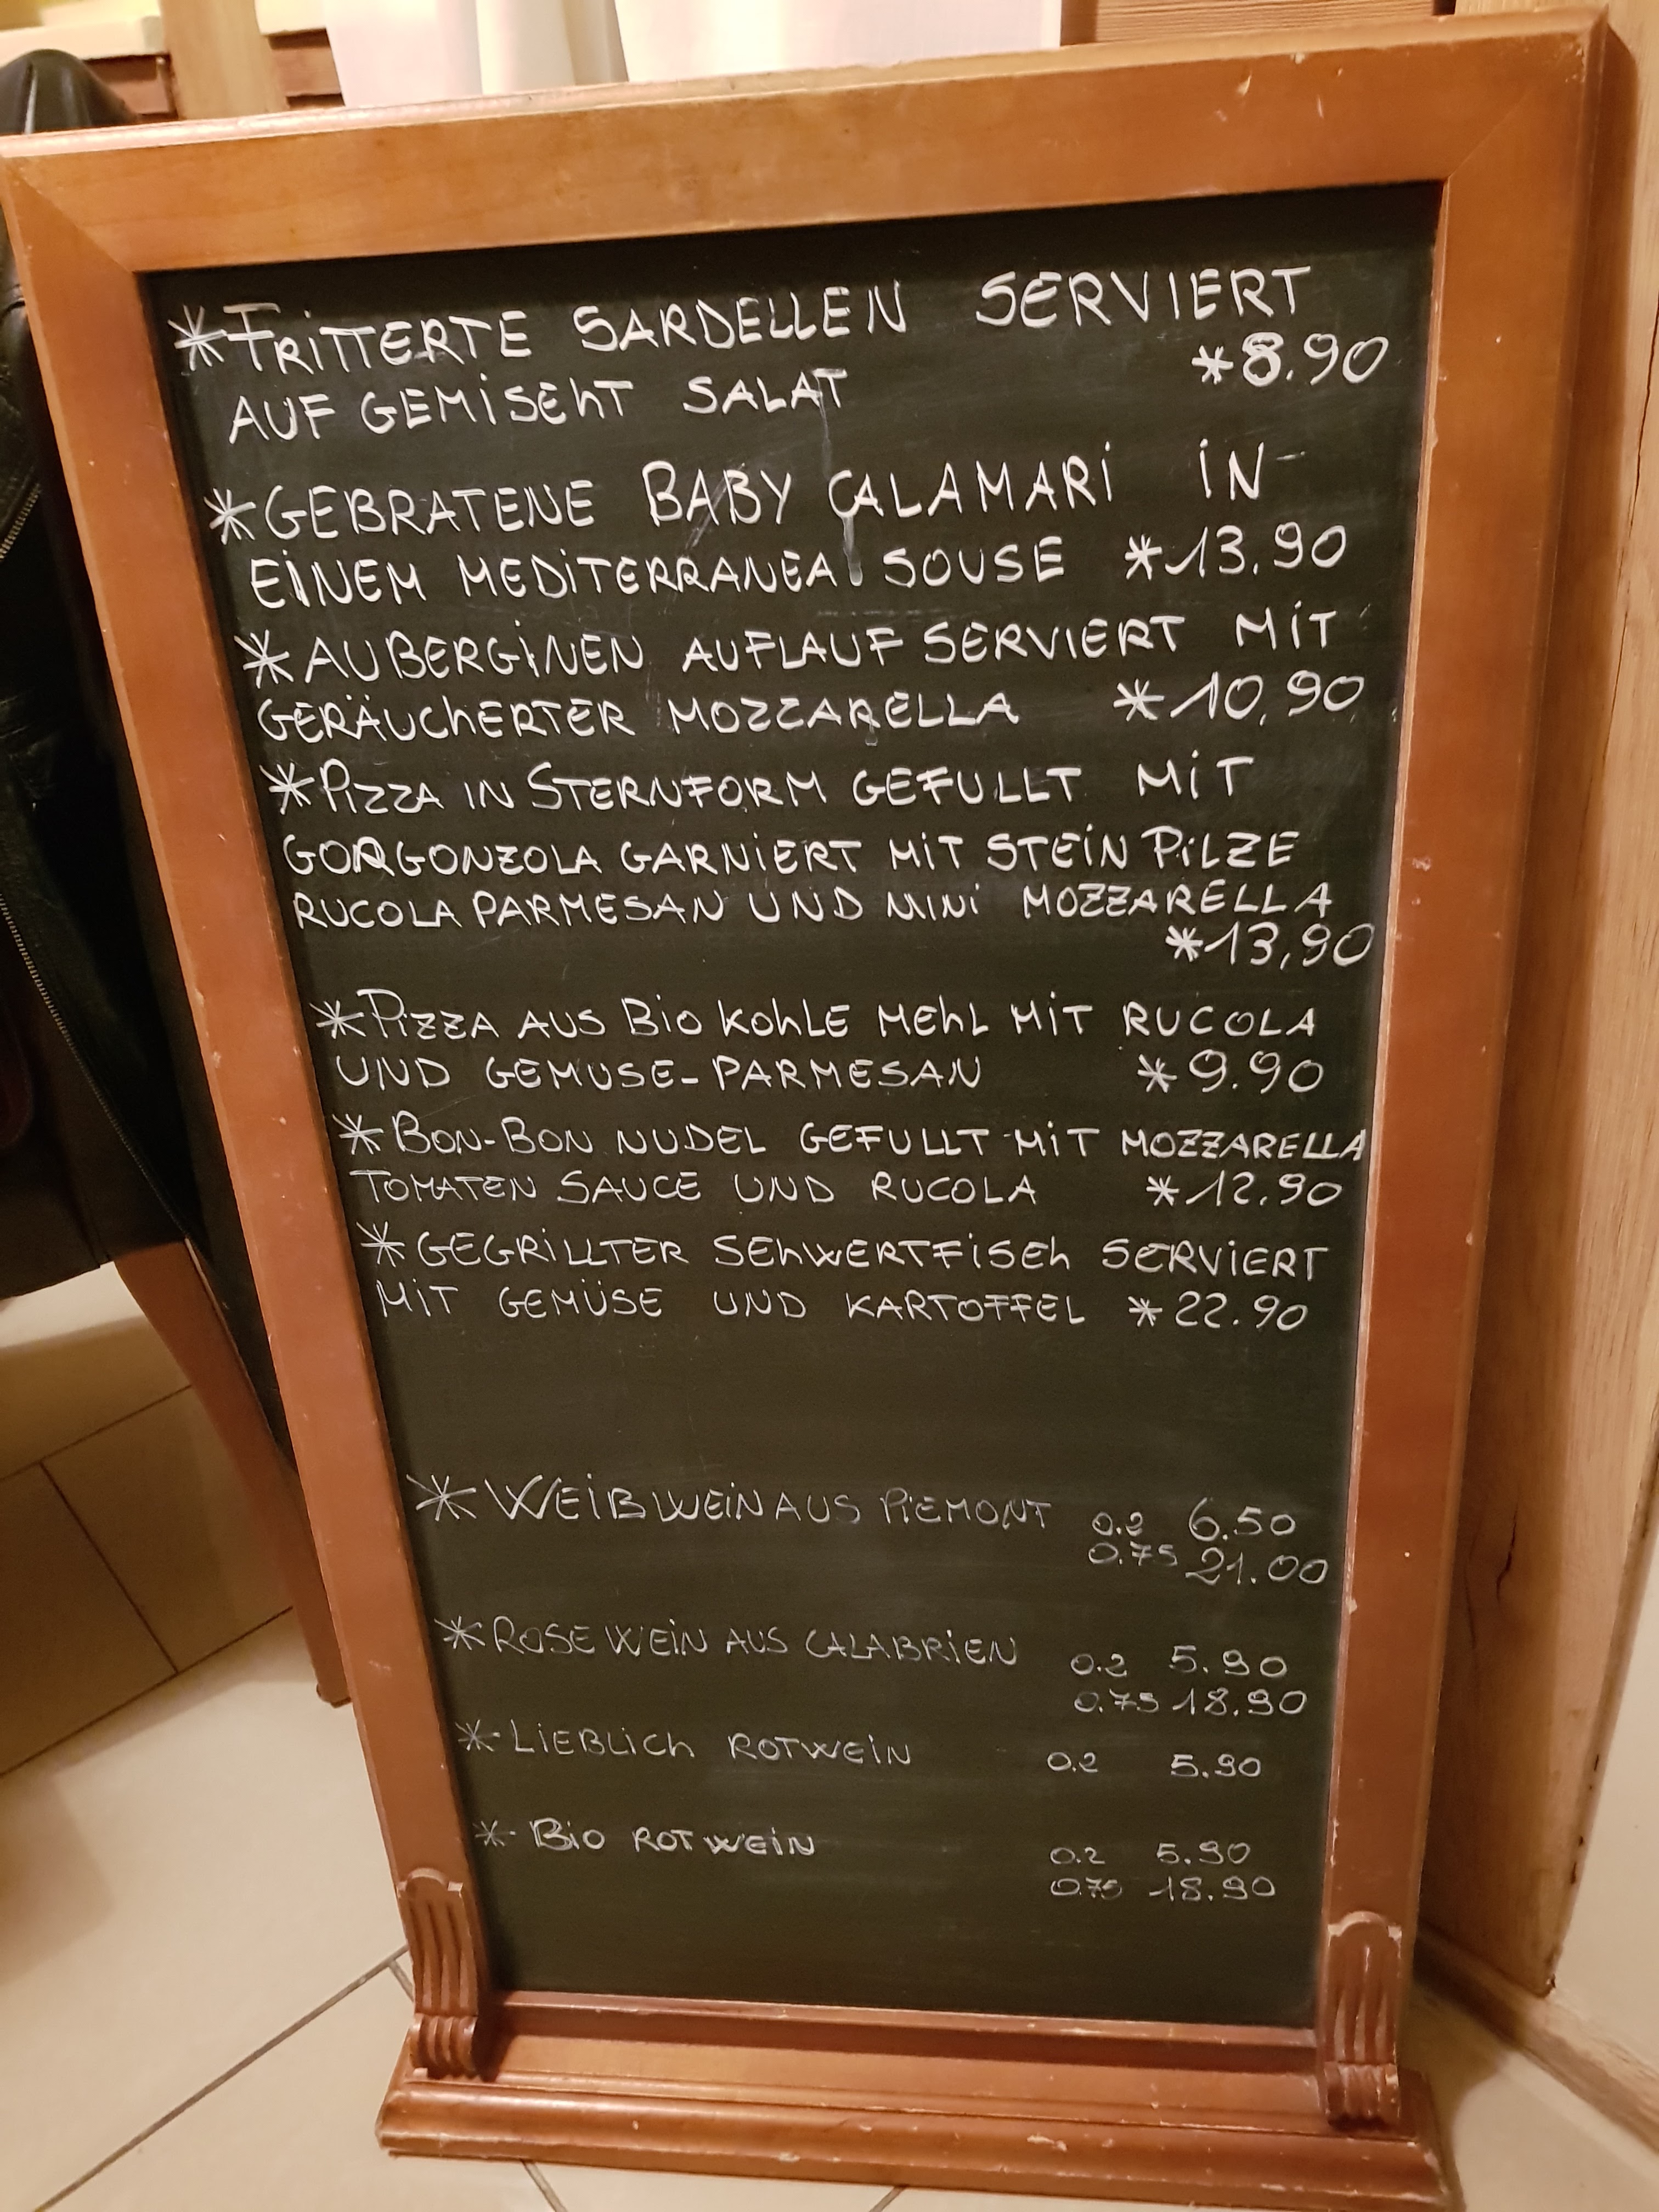 *FRITTERTE SARDELLEN SERVIERT
AUF GEMISCHT SALAT *8.90
*GEBRATENE BABY CALAMARI IN
EINEM MEDITERRANEA SOUSE *13.90
*AUBERGINEN AUFLAUF SERVIERT MIT
GERÄUCHERTER MOZZARELLA *10,90
*PIZZA IN STERNFORM GEFULLT MIT
GORGONZOLA GARNIERT MIT STEIN PILZE
RUCOLA PARMESAN UND MINI MOZZARELLA
*13,90
*PIZZA AUS BIO KOHLE MEHL MIT RUCOLA
UND GEMUSE-PARMESAN *9.90
*BON-BON NUDEL GEFULLT MIT MOZZARELLA
TOMATEN SAUCE UND RUCOLA *12.90
*GEGRILLTER SCHWERTFISCH SERVIERT
MIT GEMÜSE UND KARTOFFEL *22.90
*WEIßWEIN AUS PIEMONT 0.2 6.50
0.75 21.00
*ROSE WEIN AUS CALABRIEN 0.2 5.90
0.75 18.90
*LIEBLICH ROTWEIN 0.2 5.90
*BIO ROTWEIN 0.2 5.90
0.75 18.90